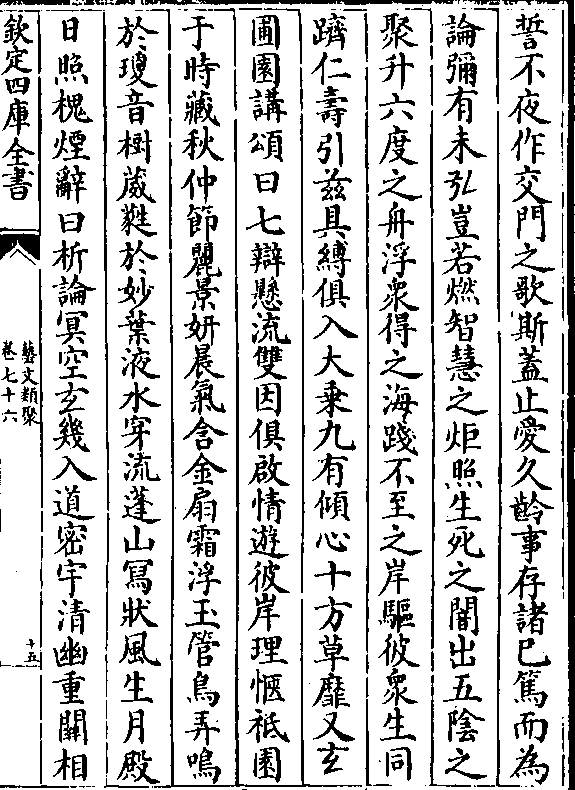 誓不夜作交門之歌斯蓋止愛久齡事存諸已篤而為
論彌有未弘豈若燃智慧之炬照生死之闇出五陰之
聚升六度之舟浮衆得之海踐不至之岸驅彼衆生同
躋仁壽引茲具縛俱入大乗九有傾心十方草靡又玄
圃園講頌曰七辯懸流雙因俱啟情遊彼岸理愜祇園
于時藏秋仲節麗景妍晨氣含金扇霜浮玉管鳥弄鳴
於瓊音樹葳蕤於妙葉液水穿流蓬山寫狀風生月殿
日照槐煙辭曰析論冥空玄幾入道密宇清幽重關相
欽定四庫全書
藝文類聚
卷七十六
十五